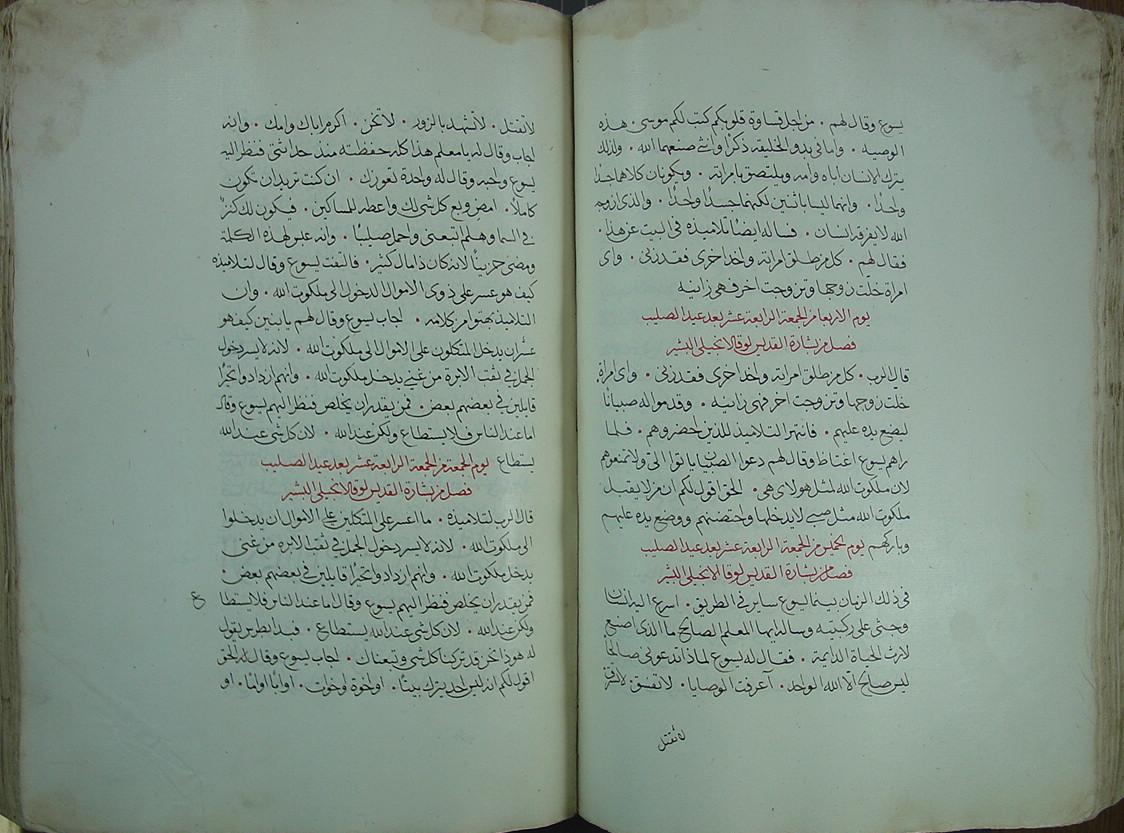 يسوع وقال لهم . من اجل قساوة قلوبكم كتب لكم موسى . هذه
الوصيه . واما في بدو الخليقه ذكرا وانثى صنعهما الله . ولذلك
يترك الانسان اباه وامه ويلتصق بامراته . ويكونان كلاهما جسدا
واحدا . وانهما ليسا باثنين لكنهما جسدا واحدا . والذي ازوجه
الله لا يفرقه انسان . فساله ايضا تلاميذه في البيت عن هذا .
فقال لهم . كل من طلق امراته واخذ اخرى فقد زنى . واي
امراة خلت زوجها وتزوجت اخر فهي زانيه
يوم الاربعا من الجمعة الرابعة عشر بعد عيد الصليب
فصل من بشارة القديس لوقا الانجيلي البشر
قال الرب . كل من طلق امراته واخذ اخرى فقد زنى . واي امراة
خلت زوجها وتزوجت اخر فهي زانيه . وقدموا له صبيانا
ليضع يده عليهم . فانتهر التلاميذ للذين احضروهم . فلما
راهم يسوع اغتاظ وقال لهم دعوا الصبيان ياتوا الي ولا تمنعوهم
لان ملكوت الله لمثل هولاي هي . الحق اقول لكم ان من لا يقبل
ملكوت الله مثل صبي لا يدخلها واحتضنهم ووضع يده عليهم
وباركهم يوم الخميس من الجمعة الرابعة عشر بعد عيد الصليب
فصل من بشارة القديس لوقا الانجيلي البشر
في ذلك الزمان بينما يسوع ساير في الطريق . اسرع اليه انسان
وجثى على ركبتيه وساله ايها المعلم الصالح ما الذي اصنع
لارث الحياة الدايمة . فقال له يسوع لماذا تدعوني صالحا
ليس صالح الا الله الواحد . اعرفت الوصايا . لا تفسق . لا تسرق
لا تقتل
لا تقتل . لا تشهد بالزور . لا تخن . اكرم اباك وامك . وانه
اجاب وقال له يا معلم هذا كله حفظته منذ حداثتي فنظر اليه
يسوع واحبه وقال له واحدة تعوزك . ان كنت تريد ان تكون
كاملا . امض وبع كل شي لك واعطه للمساكين . فيكون لك كنزا
في السما وهلم اتبعني واحمل صليبا . وانه عبس لهذه الكلمة
ومضى حزينا لانه كان ذا مال كثير . فالتفت يسوع وقال لتلاميذه
كيف هو عسر على ذوي الاموال الدخول الى ملكوت الله . وان
التلاميذ بهتوا من كلامه . اجاب يسوع وقال لهم يا بنين كيف هو
عسر ان يدخل المتكلون على الاموال الى ملكوت الله . لانه لا يسر دخول
الجمل في ثقب الابرة من غني يدخل ملكوت الله . وانهم ازدادوا تحيرا
قايلين في بعضهم بعض . فمن يقدر ان يخلص فنظر اليهم يسوع وقال
اما عند الناس فلا يستطاع ولكن عند الله . لان كل شي عند الله
يستطاع يوم الجمعة من الجمعة الرابعة عشر بعد عيد الصليب
فصل من بشارة القديس لوقا الانجيلي البشر
قال الرب لتلاميذه . ما اعسر على المتكلين على الاموال ان يدخلوا
الى ملكوت الله . لانه لا يسر دخول الجمل في ثقب الابره من غني
يدخل ملكوت الله . وانهم ازدادوا تحيرا قايلين في بعضهم بعض .
فمن يقدر ان يخلص فنظر اليهم يسوع وقال اما عند الناس فلا يستطاع
ولكن عند الله . لان كل شي عند الله يستطاع . فبدا بطرس يقول
له هوذا نحن قد تركنا كل شي وتبعناك . اجاب يسوع وقال له الحق
اقول لكم انه ليس احد يترك بيتا . او اخوة او اخوات . او ابا او اما . او